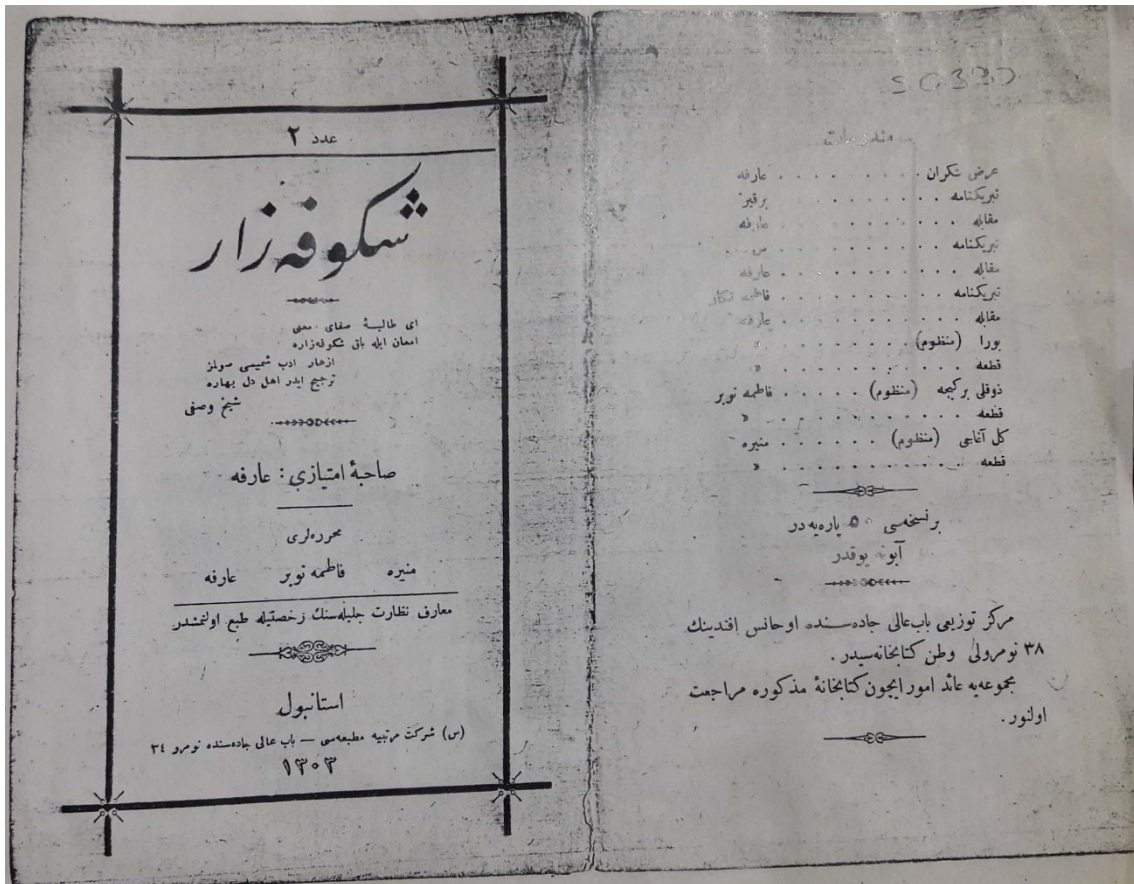 عدد ٢
شكوفه زار
ای طالبۀ صفای معنی
امعان ايله باق شكوفه‌زاره
ازهار ادب شميمی صولمز
ترجيح ايدر اهل دل بهاره
شيخ وصفی
صاحبۀ امتيازی : عارفه
محرره‌لری
منيره فاطمه نوبر عارفه
معارف نظارت جليله‌سنك رخصتيله طبع اولنمشدر
استانبول
(س) شركت مرتبيه مطبعه‌سی — باب عالی جاده‌سنده نومرو ٣٤
١٣٠٣
عرض شكران . . . . . . . . . عارفه
تبريكنامه . . . . . . . . . برقيز
مقابله . . . . . . . . . . . عارفه
تبريكنامه . . . . . . . . . س
مقابله . . . . . . . . . . . عارفه
تبريكنامه . . . . . . . . . فاطمه نكار
مقابله . . . . . . . . . . . عارفه
بورا (منظوم) . . . . . . . »
قطعه . . . . . . . . . . . »
ذوقلی بركيجه (منظوم) . . . . . فاطمه نوبر
قطعه . . . . . . . . . . . »
كل آغاجی (منظوم) . . . . . . منيره
قطعه . . . . . . . . . . . »
برنسخه‌سی ٥٠ پاره‌يه در
آبونه يوقدر
مركز توزيعی باب عالی جاده‌سنده اوحانس افندينك
٣٨ نومرولی وطن كتابخانه‌سيدر .
مجموعه‌يه عائد امور ايچون كتابخانۀ مذكوره مراجعت
اولنور .